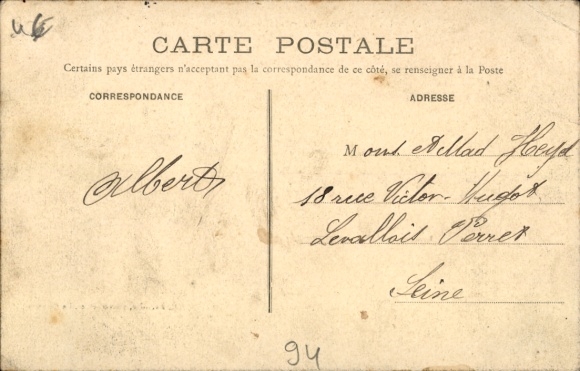 CARTE POSTALE
Certains pays étrangers n'acceptant pas la correspondance de ce côté, se renseigner à la Poste
CORRESPONDANCE
ADRESSE
Albert
Heyd
18 rue Victor-Hugot
Levallois Perret
Seine
94